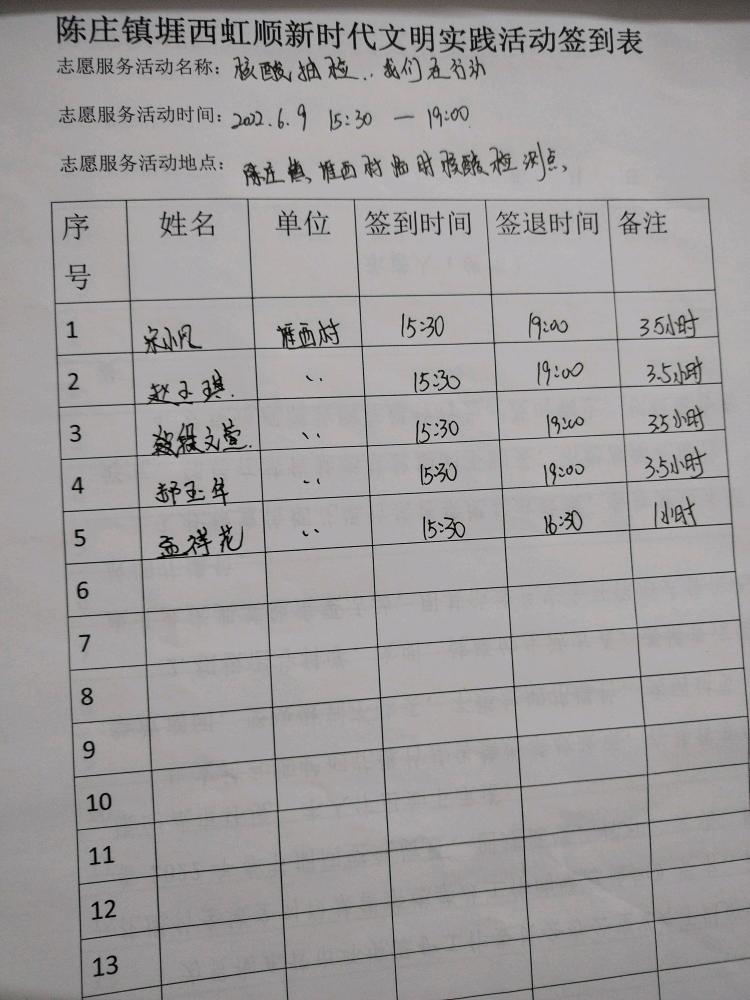 陈庄镇堐西虹顺新时代文明实践活动签到表
志愿服务活动名称：核酸抽检..我们在行动
志愿服务活动时间：2022.6.9 15:30 — 19:00
志愿服务活动地点：陈庄镇、堐西村临时核酸检测点、
序号 姓名 单位 签到时间 签退时间 备注
1 宋小凡 堐西村 15:30 19:00 3.5小时
2 赵玉琪 、、 15:30 19:00 3.5小时
3 段文萱 、、 15:30 19:00 3.5小时
4 郝玉华 、、 15:30 19:00 3.5小时
5 孟祥花 、、 15:30 16:30 1小时
6
7
8
9
10
11
12
13